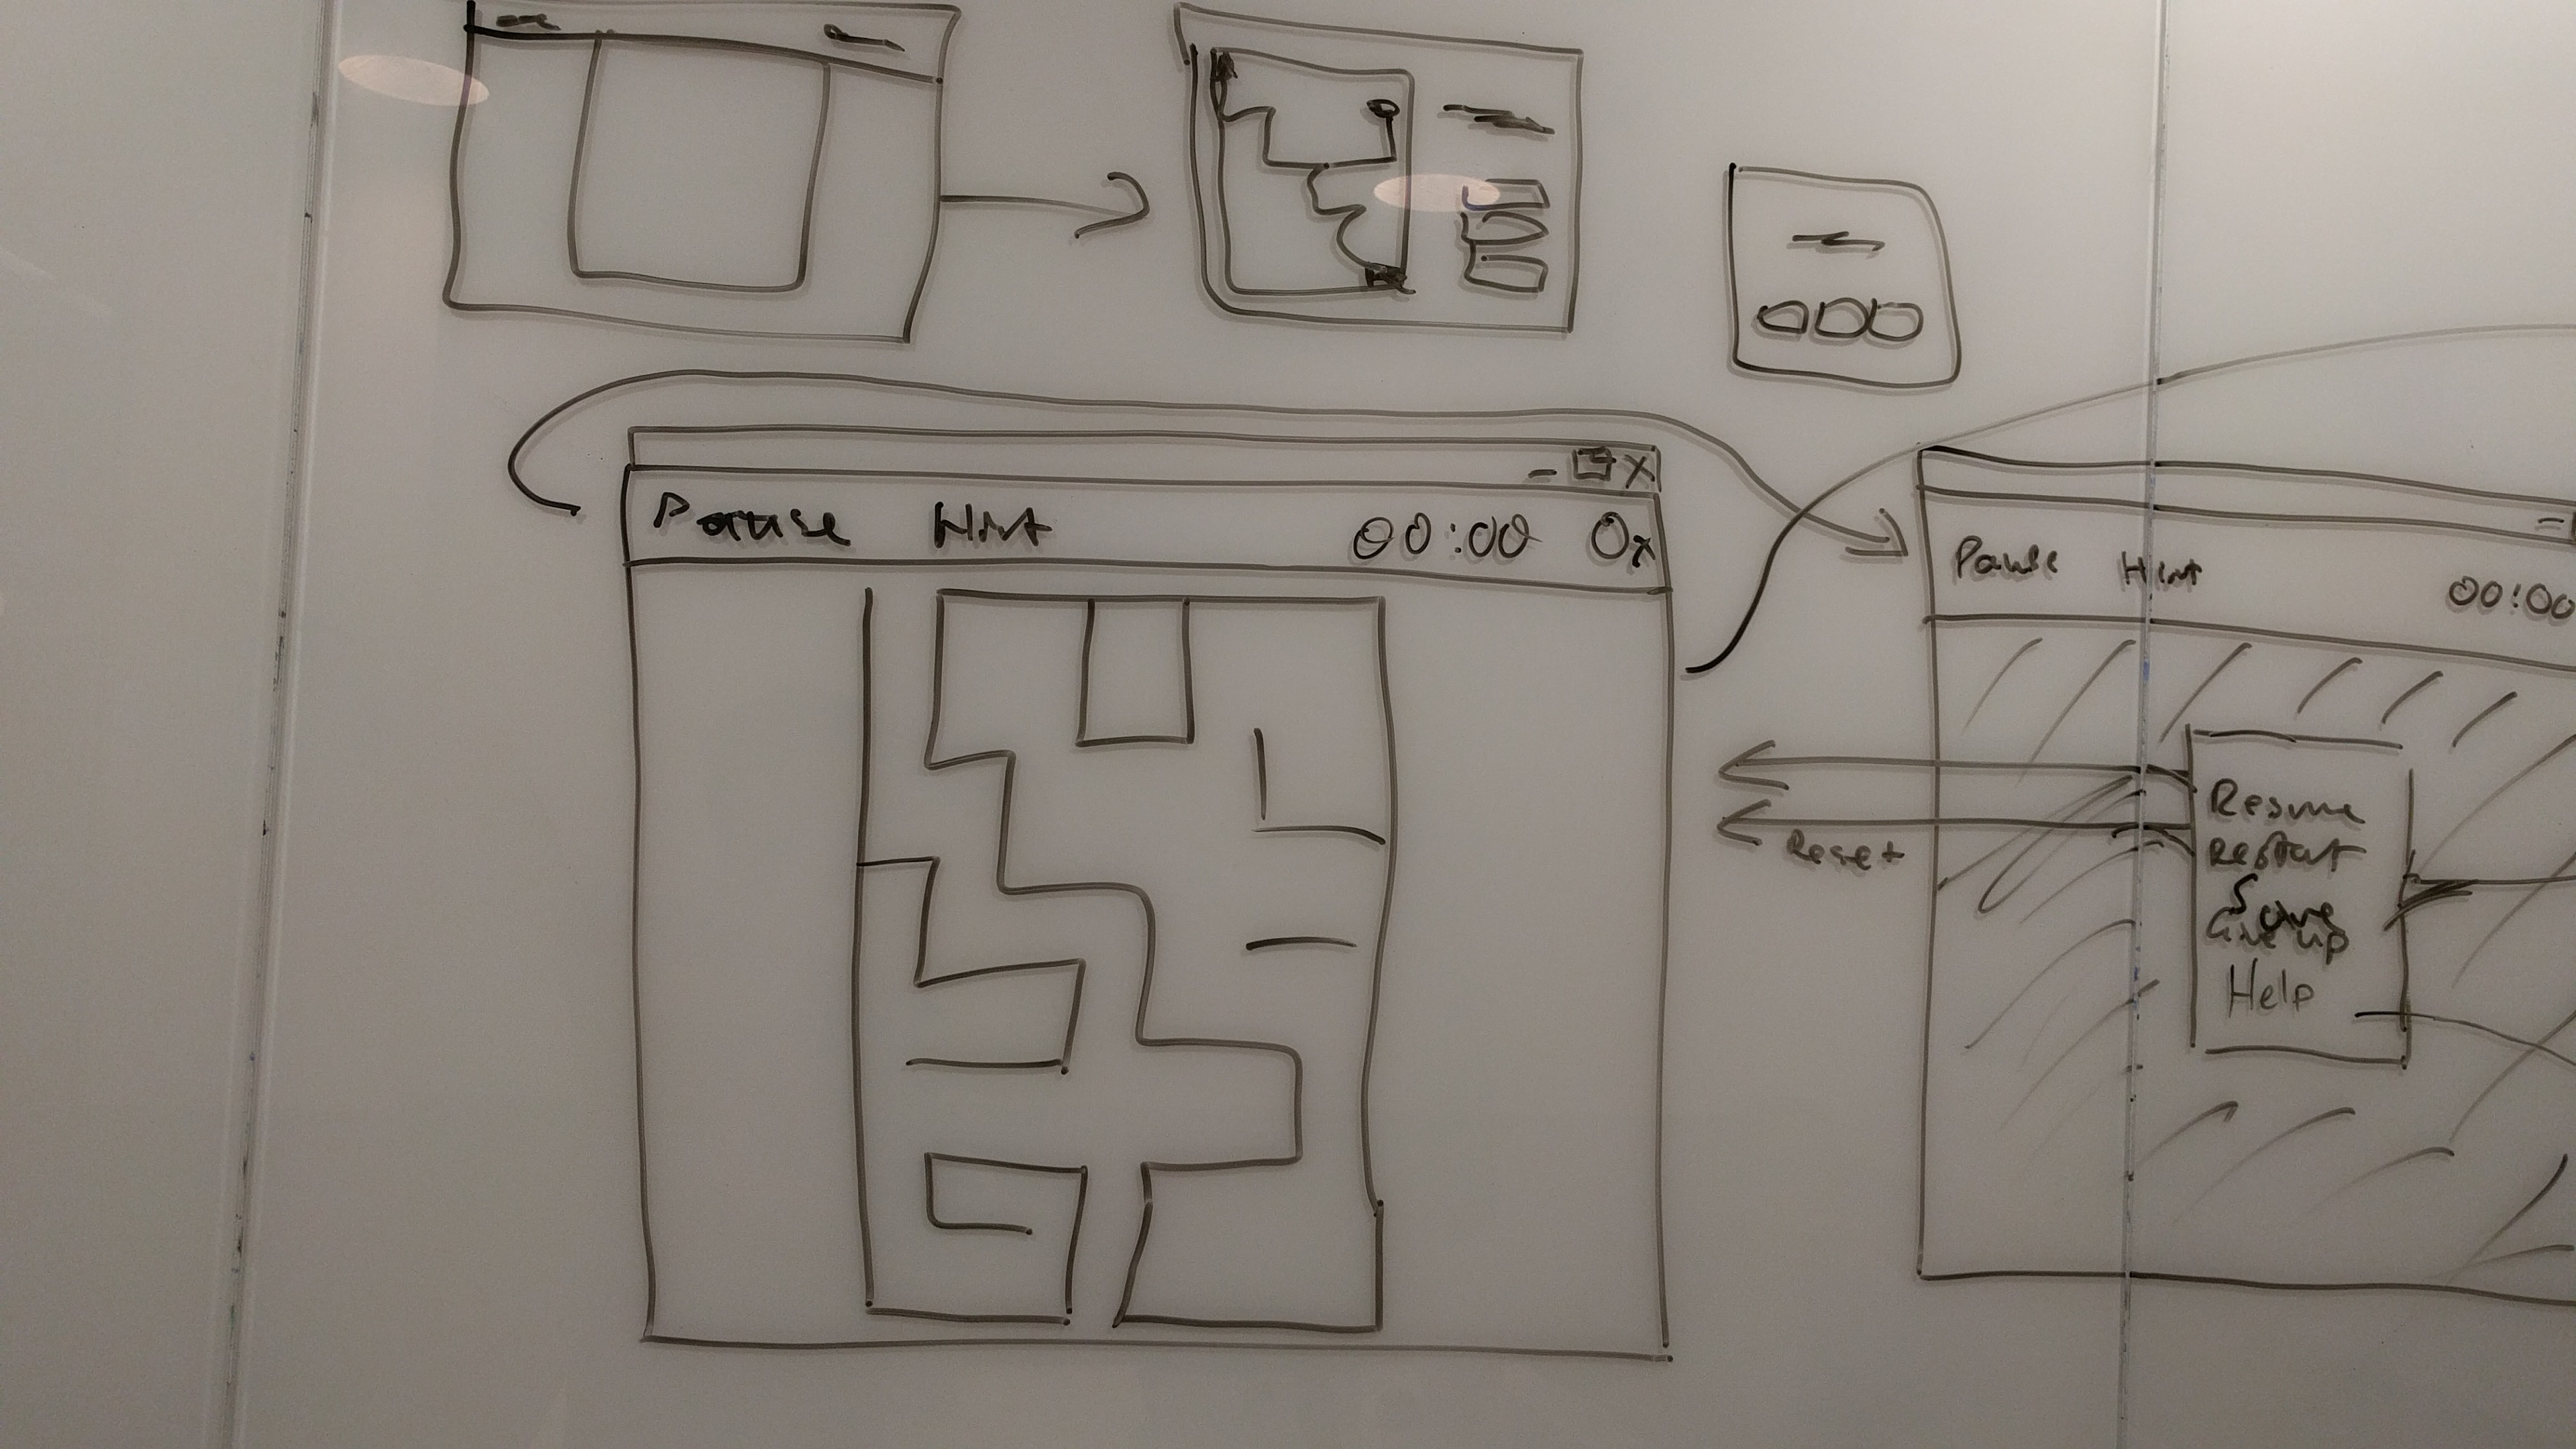 Pause Hint 00:00 0x
Pause Hint 00:00
Resume
Restart
Save
Give up
Help
Reset